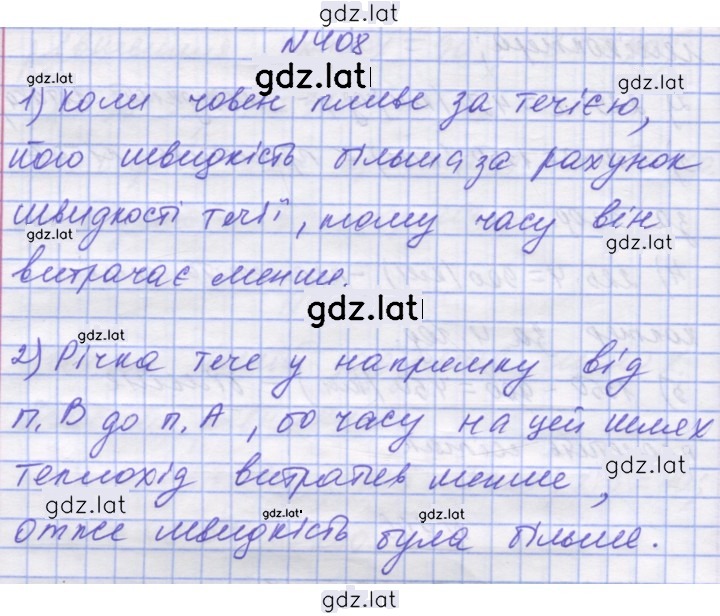 gdz.lat
N408
gdz.lat
gdz.lat
1) Коли човен пливе за течією,
gdz.lat
його швидкість більша за рахунок
швидкості течії, тому часу він
gdz.lat
gdz.lat
витрачає менше.
gdz.lat
gdz.lat
2) Річка тече у напрямку від
п. В до п. А, бо часу на цей шлях
теплохід витратив менше,
gdz.lat
gdz.lat
gdz.lat
gdz.lat
отже швидкість була більше.
gdz.lat